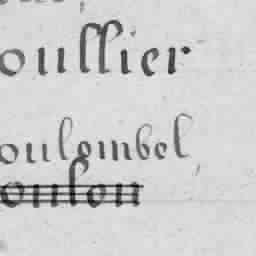 oullier
oulombel
oulon